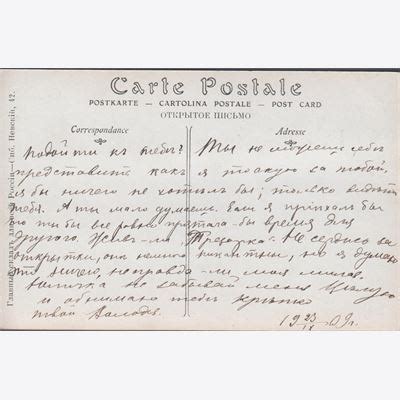 Carte Postale
POSTKARTE — CARTOLINA POSTALE — POST CARD
ОТКРЫТОЕ ПИСЬМО
Correspondance
Adresse
Главный складъ для всей Россіи—Спб. Невскій, 42.
подойти къ тебѣ? Ты не можешь себѣ
представить какъ я тоскую за тобой,
я бы ничего не хотѣлъ бы; только видѣть
тебя. А ты мало думаешь. Если я пріѣхалъ бы
ты бы все ровно прятала бы время для
другого. Не сердись за
открытки, они немного пикантны, но я думаю
это ничего, неправда-ли моя милая.
не забывай меня Цѣлую
и обнимаю тебя крѣпко
твой Володя
19 23 09 г.